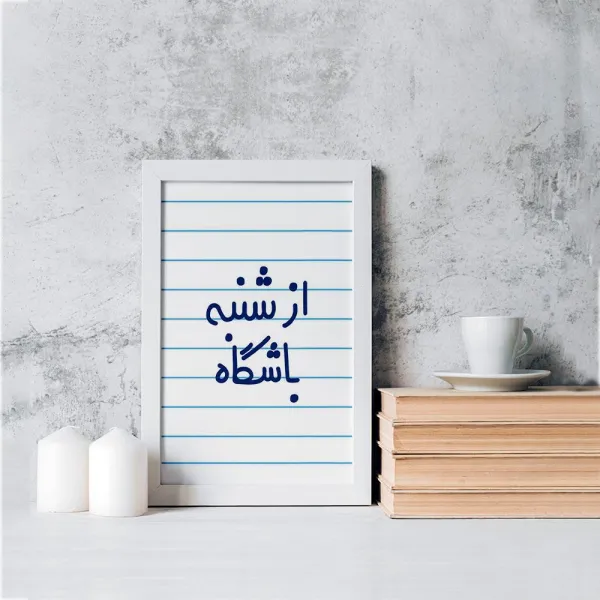 از شنبه
باشگاه